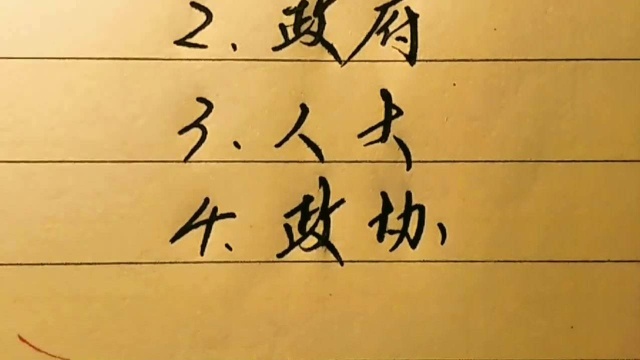 2、政府
3、人大
4、政协